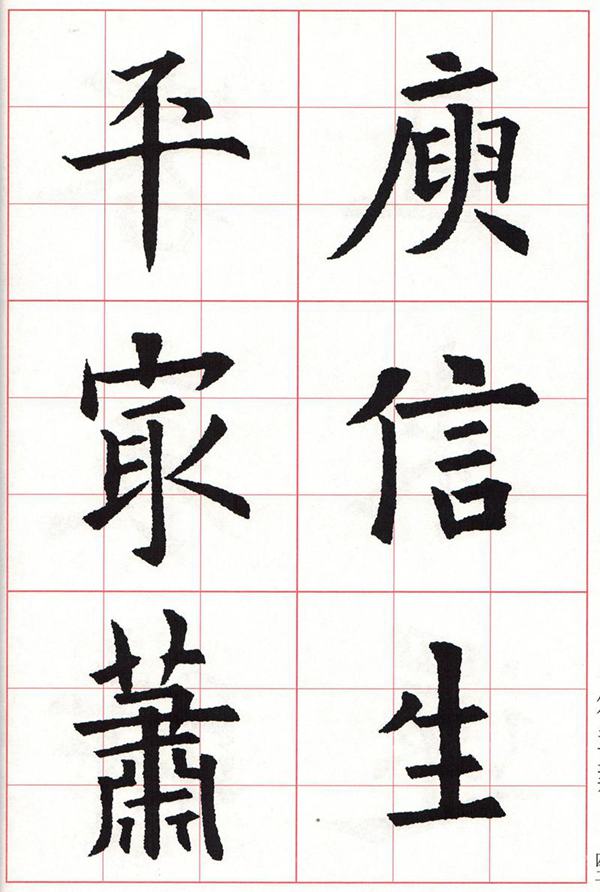 庾信生
平㝡蕭